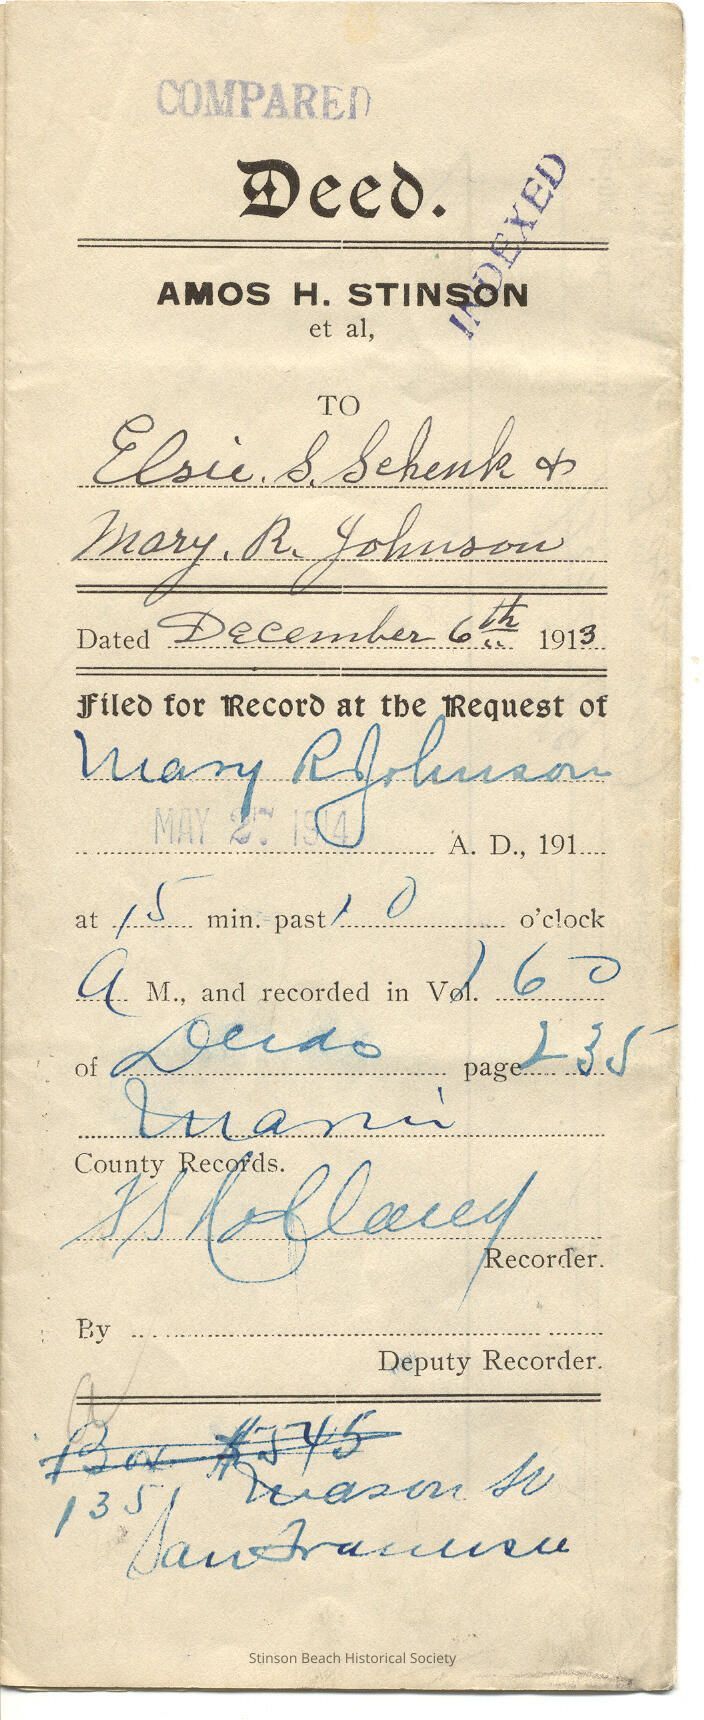 COMPARED
Deed.
INDEXED
AMOS H. STINSON
et al,
TO
Elsie. S. Schenk &
Mary. R. Johnson
Dated December 6th 1913
Filed for Record at the Request of
Mary R Johnson
MAY 27 1914 A. D., 191
at 15 min. past 10 o'clock
A M., and recorded in Vol. 160
of Deeds page 235
Marin
County Records.
Recorder.
By
Deputy Recorder.
Box #545
1351 Mason St
San Francisco
Stinson Beach Historical Society